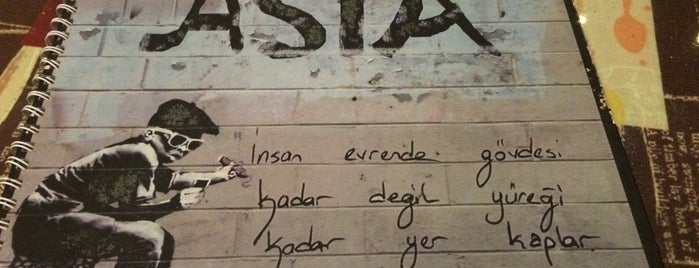 ASIA
İnsan evrende gövdesi
kadar değil yüreği
kadar yer kaplar.